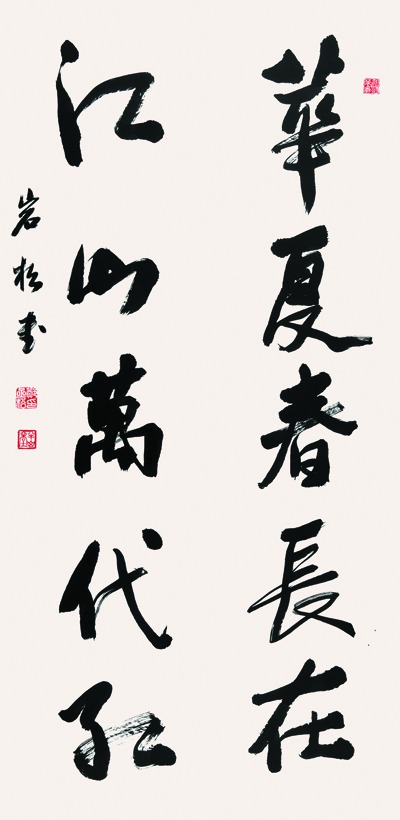 華夏春長在
江山萬代紅
岩松書